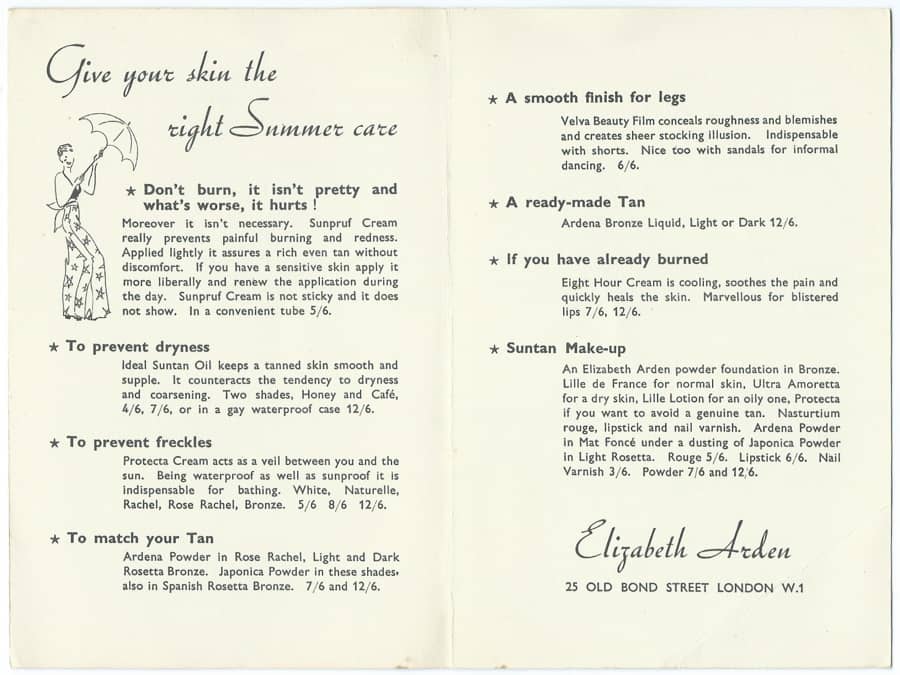 Give your skin the
right Summer care
★ Don't burn, it isn't pretty and
what's worse, it hurts !
Moreover it isn't necessary. Sunpruf Cream
really prevents painful burning and redness.
Applied lightly it assures a rich even tan without
discomfort. If you have a sensitive skin apply it
more liberally and renew the application during
the day. Sunpruf Cream is not sticky and it does
not show. In a convenient tube 5/6.
★ To prevent dryness
Ideal Suntan Oil keeps a tanned skin smooth and
supple. It counteracts the tendency to dryness
and coarsening. Two shades, Honey and Café,
4/6, 7/6, or in a gay waterproof case 12/6.
★ To prevent freckles
Protecta Cream acts as a veil between you and the
sun. Being waterproof as well as sunproof it is
indispensable for bathing. White, Naturelle,
Rachel, Rose Rachel, Bronze. 5/6 8/6 12/6.
★ To match your Tan
Ardena Powder in Rose Rachel, Light and Dark
Rosetta Bronze. Japonica Powder in these shades,
also in Spanish Rosetta Bronze. 7/6 and 12/6.
★ A smooth finish for legs
Velva Beauty Film conceals roughness and blemishes
and creates sheer stocking illusion. Indispensable
with shorts. Nice too with sandals for informal
dancing. 6/6.
★ A ready-made Tan
Ardena Bronze Liquid, Light or Dark 12/6.
★ If you have already burned
Eight Hour Cream is cooling, soothes the pain and
quickly heals the skin. Marvellous for blistered
lips 7/6, 12/6.
★ Suntan Make-up
An Elizabeth Arden powder foundation in Bronze.
Lille de France for normal skin, Ultra Amoretta
for a dry skin, Lille Lotion for an oily one, Protecta
if you want to avoid a genuine tan. Nasturtium
rouge, lipstick and nail varnish. Ardena Powder
in Mat Foncé under a dusting of Japonica Powder
in Light Rosetta. Rouge 5/6. Lipstick 6/6. Nail
Varnish 3/6. Powder 7/6 and 12/6.
Elizabeth Arden
25 OLD BOND STREET LONDON W.1